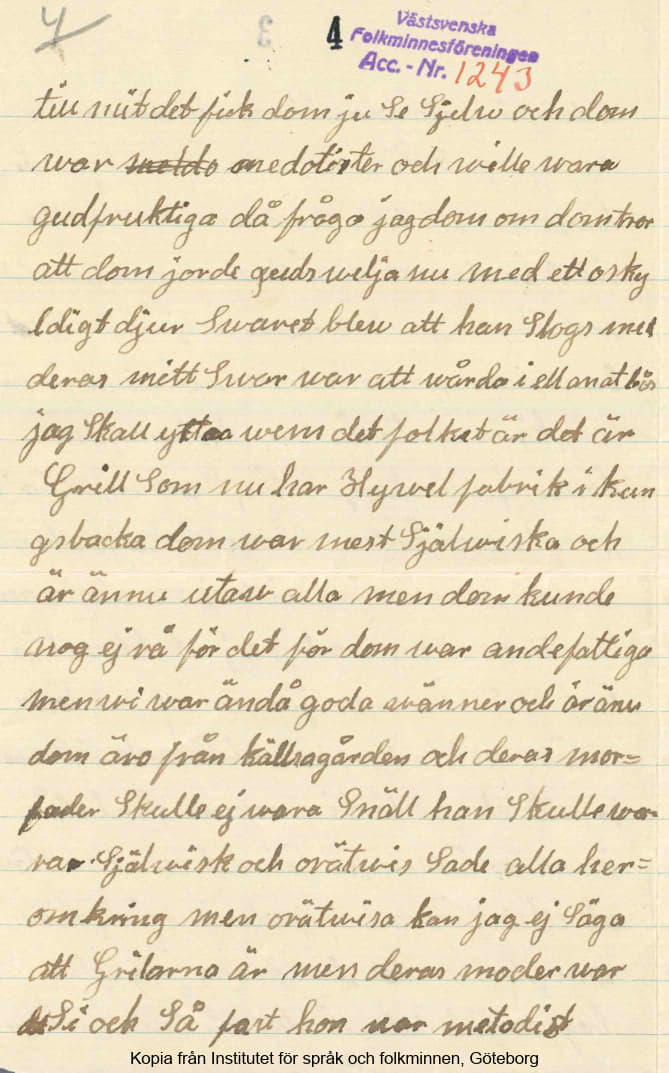 4
3
4
Västsvenska
Folkminnesföreningen
Acc. - Nr. 1243
till nüt det fick dom ju Se Sjelw och dom
war medotister och wille wara
gudfruktiga då frågo jag dom om dom tror
att dom jorde guds welja nu med ett osky
ldigt djur Swaret blew att han Slogs med
deras mitt Swar war att wårda i ell anat bås
jag Skall yttra wem det folket är det är
Grill Som nu har Hywel fabrik i kun
gsbacka dom war mest Själwiska och
är ännu utaw alla men dom kunde
nog ej rå för det för dom war andefattiga
men wi war ändå goda wänner och är änu
dom äro från källsagården och deras mor=
fader Skulle ej wara Snäll han Skulle wa-
rar Själwisk och orätwis Sade alla her=
omkring men orätwisa kan jag ej Säga
att Grilarna är men deras moder war
Si och Så fast hon war metodist
Kopia från Institutet för språk och folkminnen, Göteborg